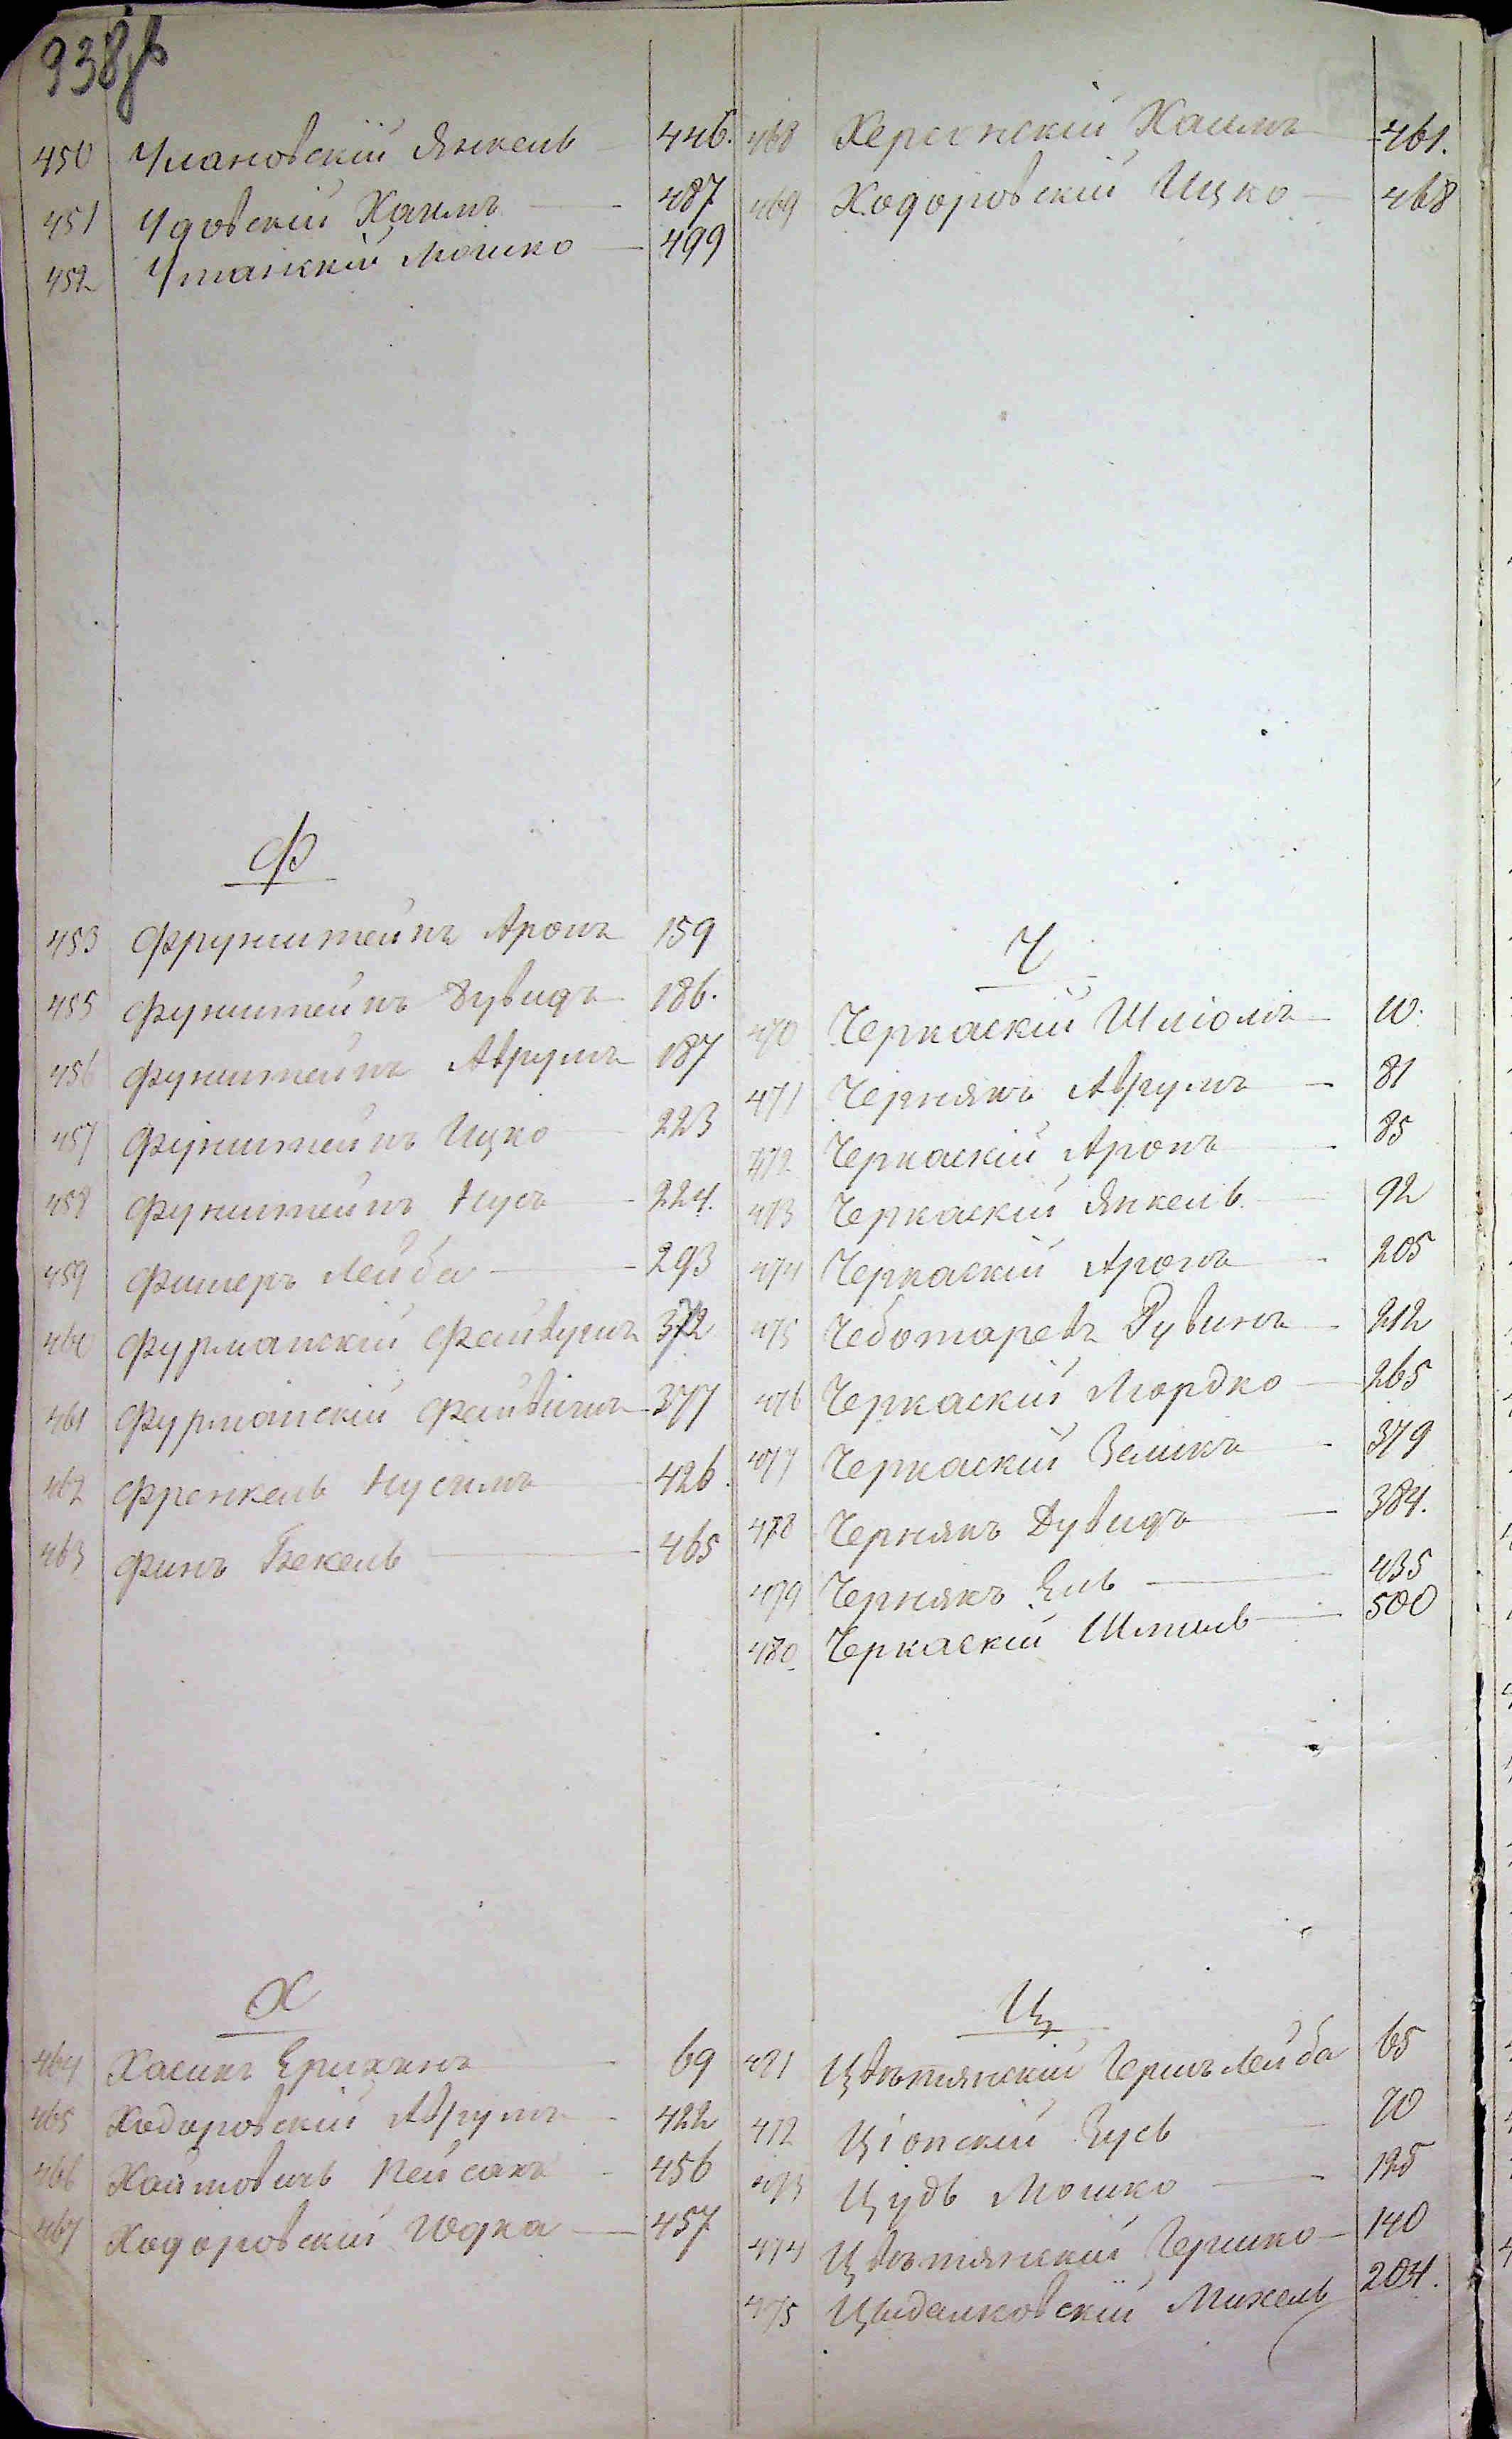 938об
450 Улановскій Янкель 446.
451 Удовскій Хаимъ 487
452 Уманскій Мошко 499
Ф
453 Фрунштейнъ Аронъ 159
455 Фунштейнъ Дувидъ 186.
456 Фунштейнъ Аврумъ 187
457 Фунштейнъ Ицко 223
458 Фунштейнъ Нусъ 224.
459 Фишеръ Лейба 293
460 Фурманскій Файвушъ 372
461 Фурманскій Файвишъ 377
462 Френкель Нусимъ 426.
463 Финъ Бекель 465
Х
464 Хасинъ 69
465 Ходоровскій Аврумъ 422
466 Хаймовичъ Пейсахъ 456
467 Ходоровскій Юдка 457
468 Херсонскій Хаимъ 461.
469 Ходоровскій Ицко 468
Ч
470 Черкаскій Шліомъ 10.
471 Чернякъ Аврумъ 81
472 Черкаскій Аронъ 85
473 Черкаскій Янкель 92
474 Черкаскій Аронъ 205
475 Чеботаревъ Рувинъ 212
476 Черкаскій Мордко 265
477 Черкаскій Зеликъ 379
478 Чернякъ Дувидъ 384.
479 Чернякъ Эль 435
480. Черкаскій Шмиль 500
Ц
471 Цвѣтянскій Гершъ Лейба 65
472 Ціонскій Зусь 70
473 Цудь Мошко 125
474 Цвѣтянскій Гершко 140
475 Цыдалковскій Михель 204.